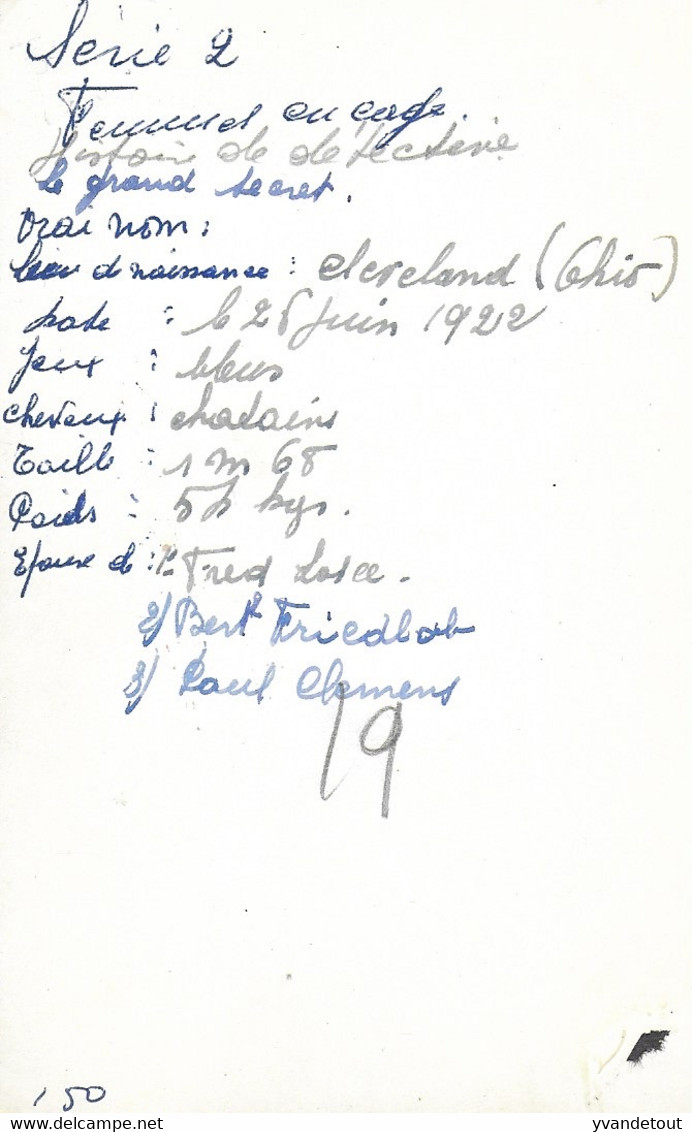 Série 2
Femmes en cage.
Histoire de détective
le grand secret.
Vrai nom :
lieu d naissance : Cleveland (Ohio)
date : le 26 Juin 1922
Yeux : bleus
cheveux : chatains
Taille : 1 m 68
Poids : 54 kgs.
Epouse de : 1 Fred Losee.
2/ Bert Friedlob
3/ Paul Clemens
19
150
delcampe.net
yvandetout